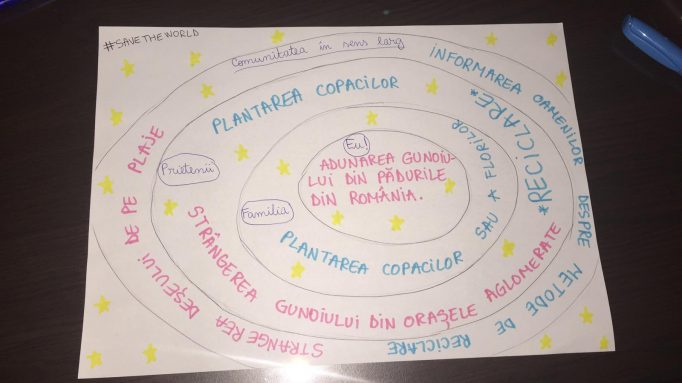 #SAVETHEWORLD
Comunitatea în sens larg
INFORMAREA OAMENILOR DESPRE METODE DE RECICLARE
STRANGEREA DEȘEULUI DE PE PLAJE
Prietenii
PLANTAREA COPACILOR
*RECICLARE*
STRÂNGEREA GUNOIULUI DIN ORAȘELE AGLOMERATE
Familia
PLANTAREA COPACILOR SAU A FLORILOR
Eu!
ADUNAREA GUNOIU-
LUI DIN PĂDURILE
DIN ROMÂNIA.